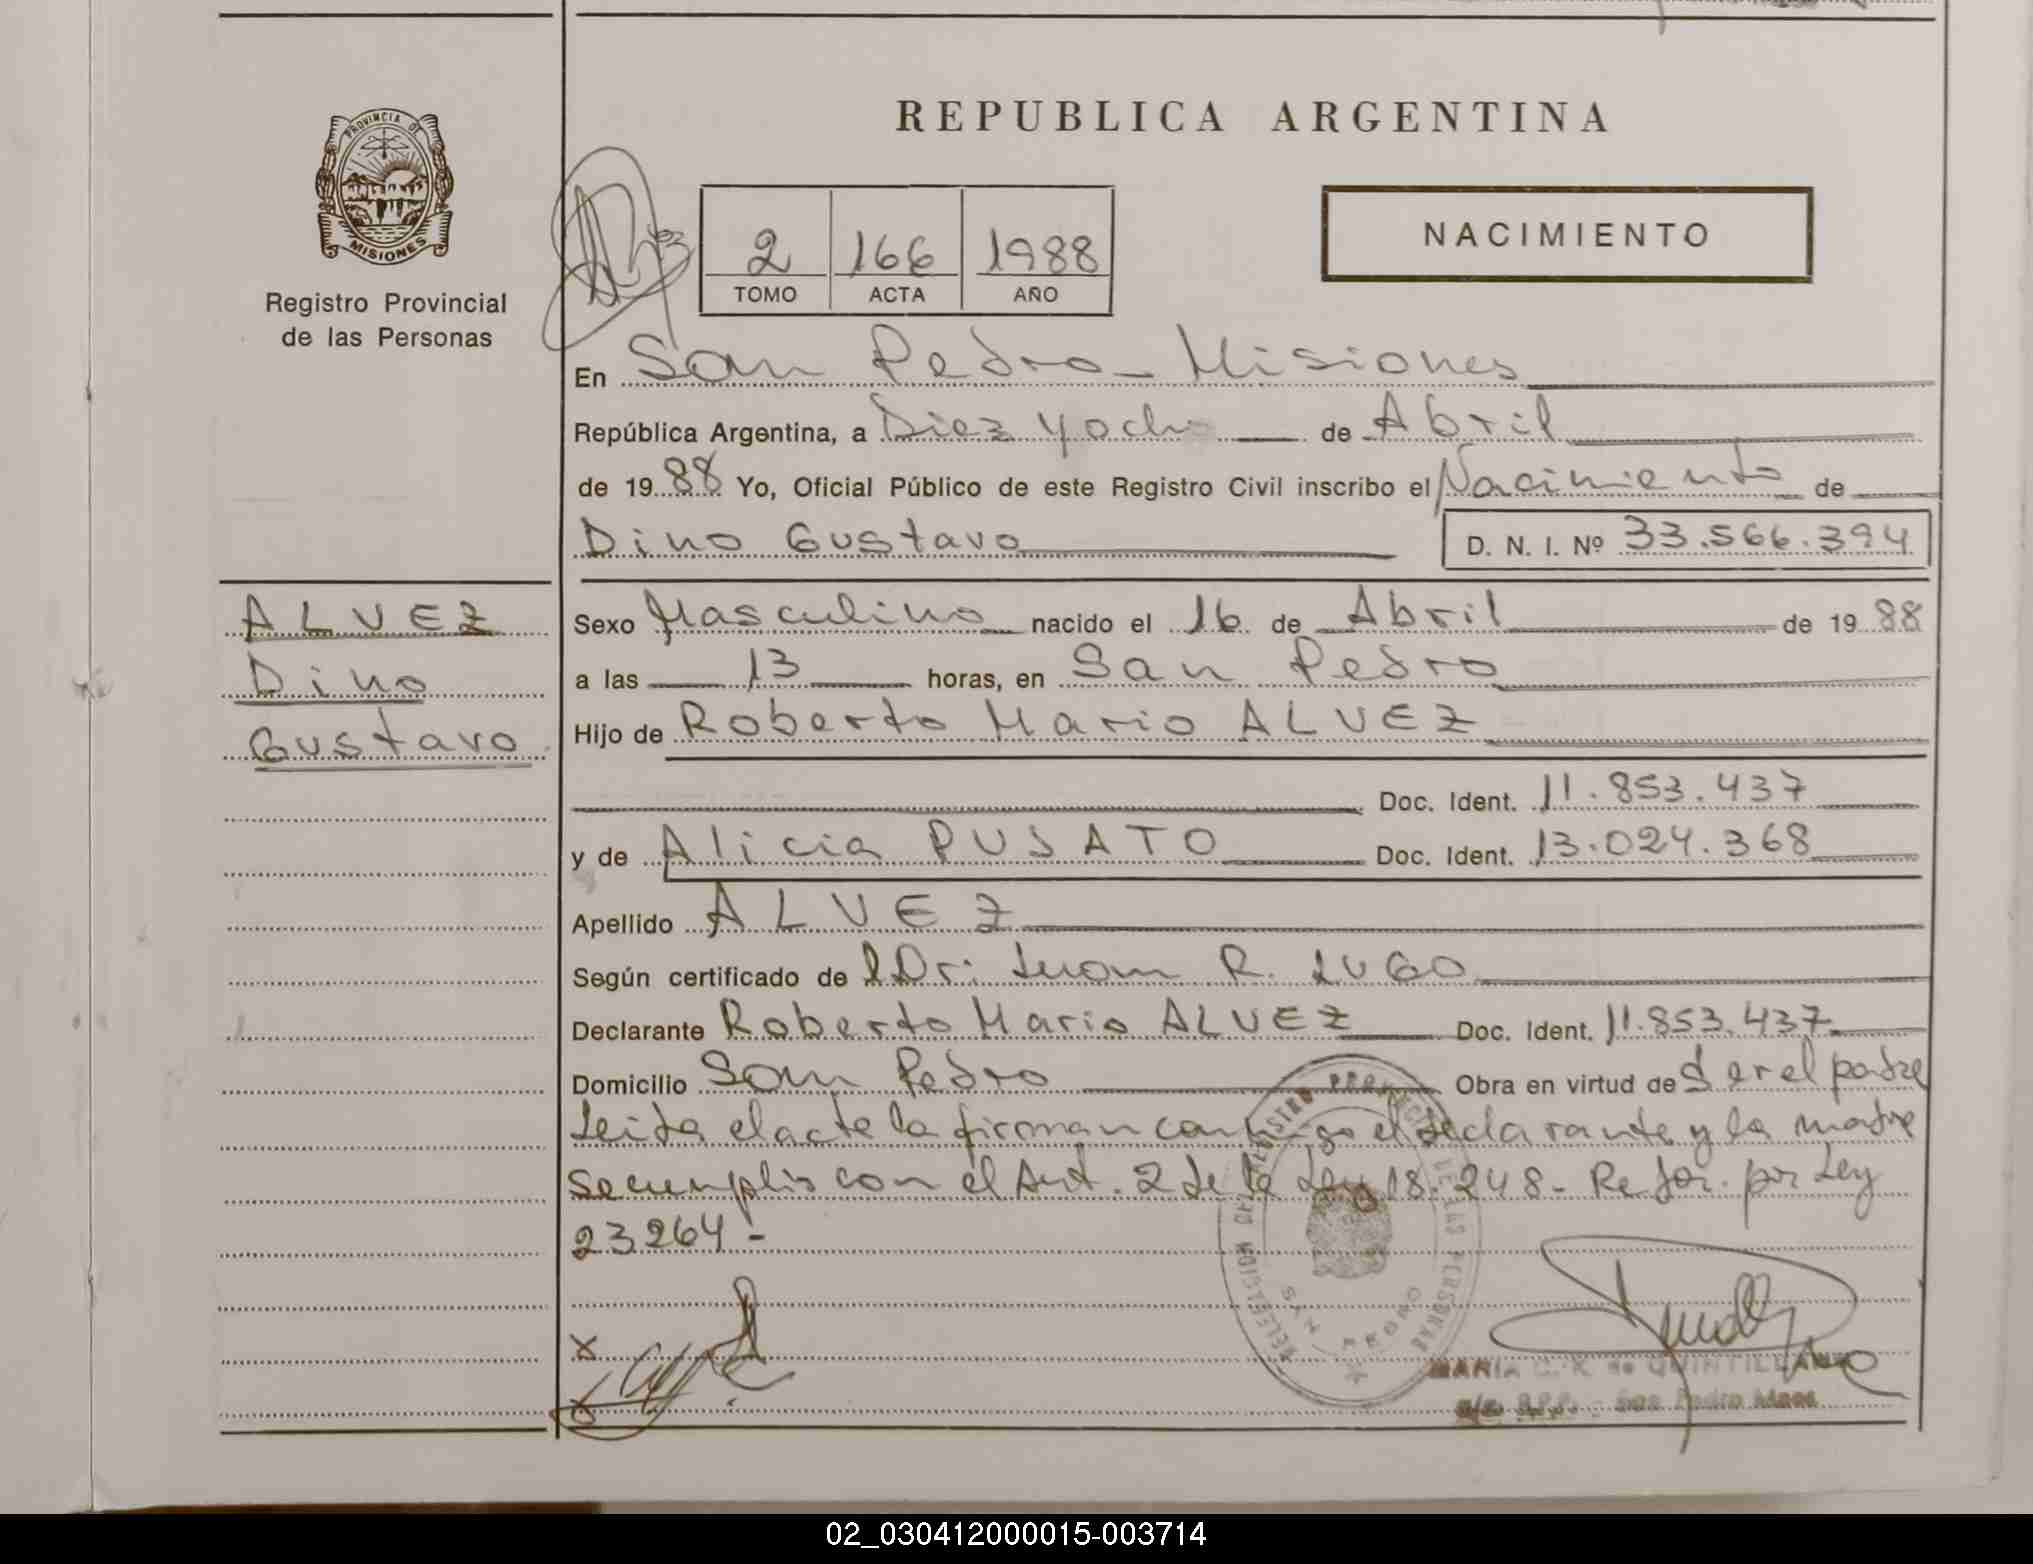 REPUBLICA ARGENTINA
PROVINCIA DE
MISIONES
Registro Provincial
de las Personas
2 166 1988
TOMO ACTA AÑO
NACIMIENTO
En San Pedro - Misiones
República Argentina, a Diez y ocho de Abril
de 1988 Yo, Oficial Público de este Registro Civil inscribo el Nacimiento de
Dino Gustavo D. N. I. Nº 33.566.394
ALVEZ
Dino
Gustavo
Sexo Masculino nacido el 16 de Abril de 1988
a las 13 horas, en San Pedro
Hijo de Roberto Mario ALVEZ
Doc. Ident. 11.853.437
y de Alicia PUSATO Doc. Ident. 13.024.368
Apellido ALVEZ
Según certificado de l Dr. Juan R. LUGO
Declarante Roberto Mario ALVEZ Doc. Ident. 11.853.437
Domicilio San Pedro Obra en virtud de Ser el padre
Leida el acta la firman conmigo el declarante y la madre
se cumplio con el Art. 2 de la Ley 18.248 - Refor. por Ley
23264 -
REGISTRO PROVINCIAL DE LAS PERSONAS
SAN PEDRO
MARIA C. K. de QUINTILLAN
San Pedro Mnes.
02_030412000015-003714